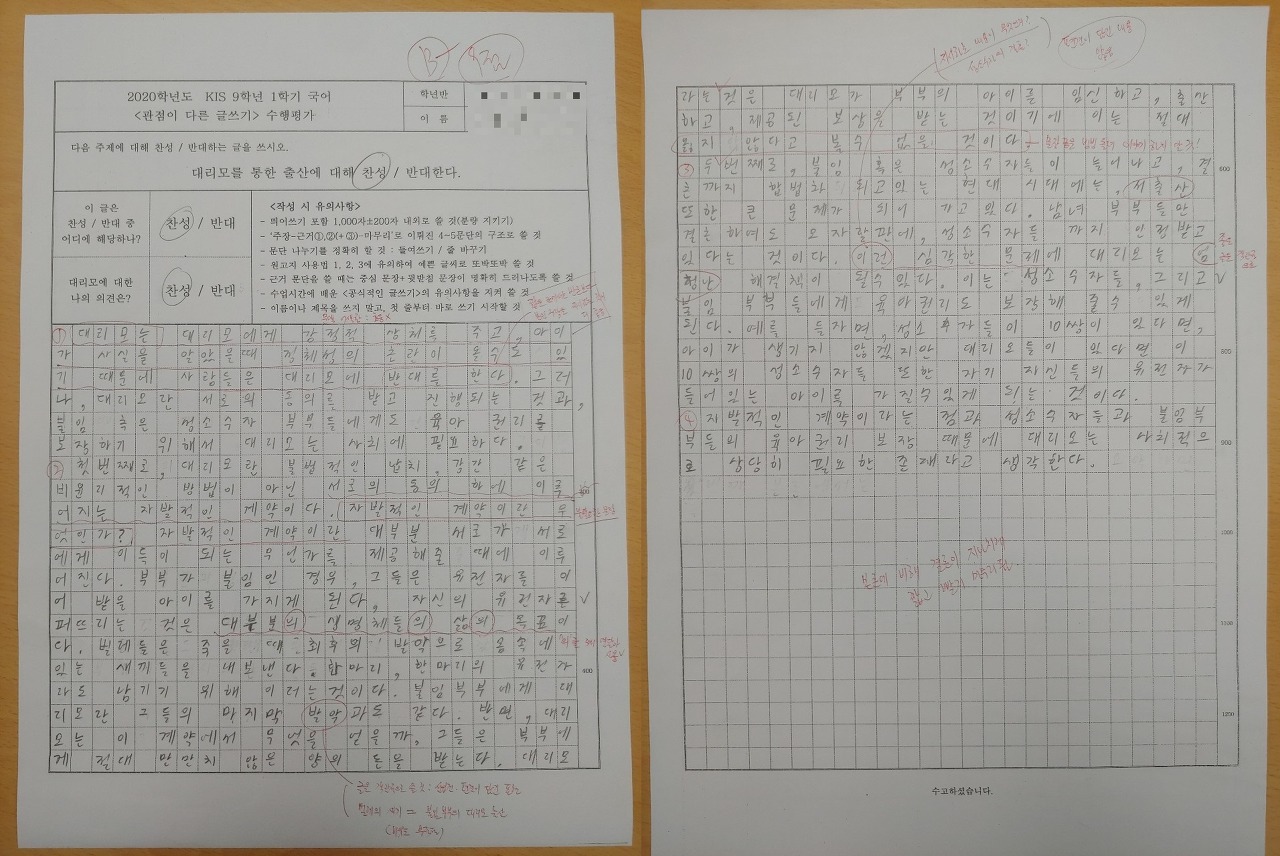 B+
2020학년도 KIS 9학년 1학기 국어
<관점이 다른 글쓰기> 수행평가
학년반
이 름
다음 주제에 대해 찬성 / 반대하는 글을 쓰시오.
대리모를 통한 출산에 대해 찬성 / 반대한다.
이 글은
찬성 / 반대 중
어디에 해당하나?
찬성 / 반대
대리모에 대한
나의 의견은?
찬성 / 반대
<작성 시 유의사항>
- 띄어쓰기 포함 1,000자±200자 내외로 쓸 것(분량 지키기)
- '주장-근거①,②(+③)-마무리'로 이뤄진 4~5문단의 구조로 쓸 것
- 문단 나누기를 정확히 할 것 : 들여쓰기 / 줄 바꾸기
- 원고지 사용법 1, 2, 3에 유의하여 예쁜 글씨로 또박또박 쓸 것
- 근거 문단을 쓸 때는 중심 문장+뒷받침 문장이 명확히 드러나도록 쓸 것
- 수업시간에 배운 <공식적인 글쓰기>의 유의사항을 지켜 쓸 것
- 이름이나 제목을 쓰지 말고, 첫 줄부터 바로 쓰기 시작할 것
① 대리모는 대리모에게 감정적 상처를 주고, 아이
가 사실을 알았을때 정체성의 혼란이 올수도 있
기 때문에 사람들은 대리모에 반대를 한다. 그러
나, 대리모란 서로의 동의를 받고 진행되는 것과,
불임 혹은 성소수자 부부들에게도 육아 권리를
보장하기 위해서 대리모는 사회에 필요하다.
② 첫번째로, 대리모란 불법적인 납치, 강간 같은
비윤리적인 방법이 아닌 서로의 동의 하에 이루
어지는 자발적인 계약이다. 자발적인 계약이란 무
엇인가? 자발적인 계약이란 대부분 서로가 서로
에게 이득이 되는 무언가를 제공해줄 때에 이루
어진다. 부부가 불임인 경우, 그들은 유전자를 이
어 받을 아이를 가지게 된다, 자신의 유전자를
퍼뜨리는 것은 대부분의 생명체들의 삶의 목표이
다. 벌레들은 죽을 때 최후의 발악으로 몸속에
있는 새끼들을 내보낸다. 한마리, 한마리의 유전자
라도 남기기 위해 이러는것이다. 불임부부에게 대
리모란 그들의 마지막 발악과도 같다. 반면, 대리
모는 이 계약에서 무엇을 얻을까, 그들은 부부에
게 절대 만만치 않은 양의 돈을 받는다. 대리모
400
라는 것은 대리모가 부부의 아이를 임신하고, 출산
하고, 제공된 보상을 받는 것이기에 이는 절대
옳지 않다고 볼수 없은 것이다.
③ 두번째로, 불임 혹은 성소수자들이 늘어나고, 결
600
혼까지 합법화 되고있는 현대 시대에는, 저출산
또한 큰 문제가 되어 가고 있다. 남녀 부부들만
결혼하여도 모자랄판에, 성소수자들 까지 인정받고
있다는 것이다. 이런 심각한 문제에 대리모는 엄
청난 해결책이 될수있다. 이는 성소수자들, 그리고
불임 부부들에게 육아권리도 보장해 줄수 있게
된다. 예를 들자면, 성소수자들이 10쌍이 있다면,
아이가 생기지 않겠지만 대리모들이 있다면 이
800
10쌍의 성소수자들 또한 자기 자신들의 유전자가
들어있는 아이를 가질수있게 되는 것이다.
④ 자발적인 계약이라는 점과 성소수자들과 불임부
부들의 육아권리 보장 때문에 대리모는 사회적으
900
로 상당히 필요한 존재라고 생각한다.
1000
본론에 비해 결론이 지나치게
짧고 빨리 마무리됨.
1100
1250
수고하셨습니다.